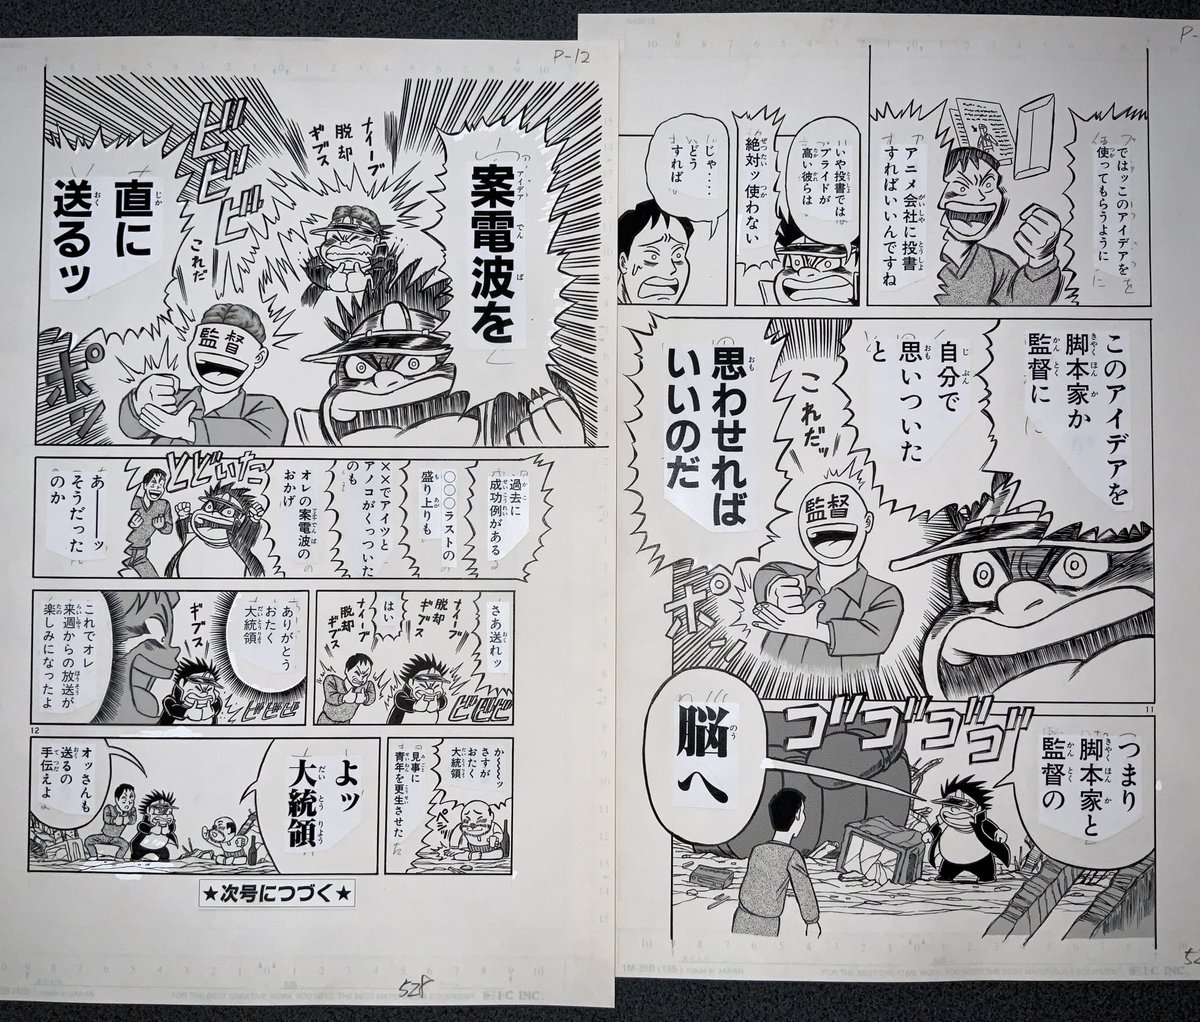 P-
ではッこのアイデアを
使ってもらうように
アニメ会社に投書
すればいいんですね
いや投書では
プライドが
高い彼らは
絶対ッ使わない
じゃ・・・・
どう
すれば
このアイデアを
脚本家か
監督に
自分で
思いついた
と
思わせれば
いいのだ
これだッ
監督
ポン
11
つまり
脚本家と
監督の
ゴゴゴゴ
脳へ
1M-35B (135) made in JAPAN
FOR THE BEST CREATIVE WORK YOU NEED THE MOST
I·C INC.
P-12
案電波を
ナイーブ
脱却
ギブス
ビビビ
直に
送るッ
これだ
監督
ポン
過去に
成功例がある
○○○ラストの
盛り上りも
××でアイツと
アノコがくっついた
のも
オレの案電波の
おかげ
とどいた
あーーッ
そうだった
のか
さあ送れッ
ナイーブ
脱却
ギブス
はい
ナイーブ
脱却
ギブス
ビビビ
ありがとう
おたく
大統領
ギブス
これでオレ
来週からの放送が
楽しみになったよ
ビビビ
12
か〜〜〜ッ
さすが
おたく
大統領
見事に
青年を更生させた
よッ
大統領
オッさんも
送るの
手伝えよ
★次号につづく★
528
FOR THE BEST CREATIVE WORK YOU NEED THE MOST
I·C INC.